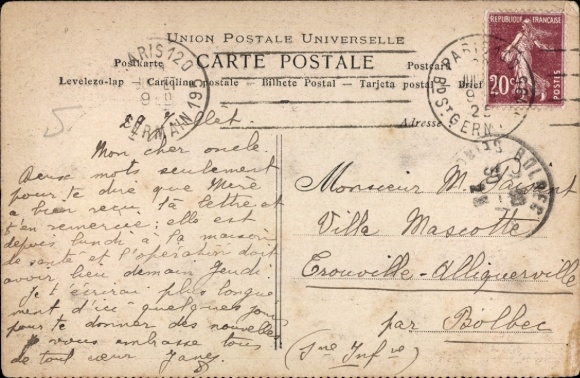 UNION POSTALE UNIVERSELLE
CARTE POSTALE
Postkarte Postcard
Levelezo-lap — Cartolina postale — Bilhete Postal — Tarjeta postal — Brief
Adresse
REPUBLIQUE FRANÇAISE
20c POSTES
PARIS 120
Bd St GERMAIN 195
PARIS
Bd St GERM
BOLBEC
29 Juillet
Mon cher oncle.
Deux mots seulement
pour te dire que Mère
a bien reçu ta lettre et
t'en remercie; elle est
depuis lundi à la maison
de santé et l'opération doit
avoir lieu demain Jeudi.
Je t'écrirai plus longue
ment d'ici quelques jours
pour te donner des nouvelles
Je vous embrasse tous
de tout cœur
Monsieur M.
Villa Mascotte
Trouville-Alliquerville
par Bolbec
(Sne Infre)